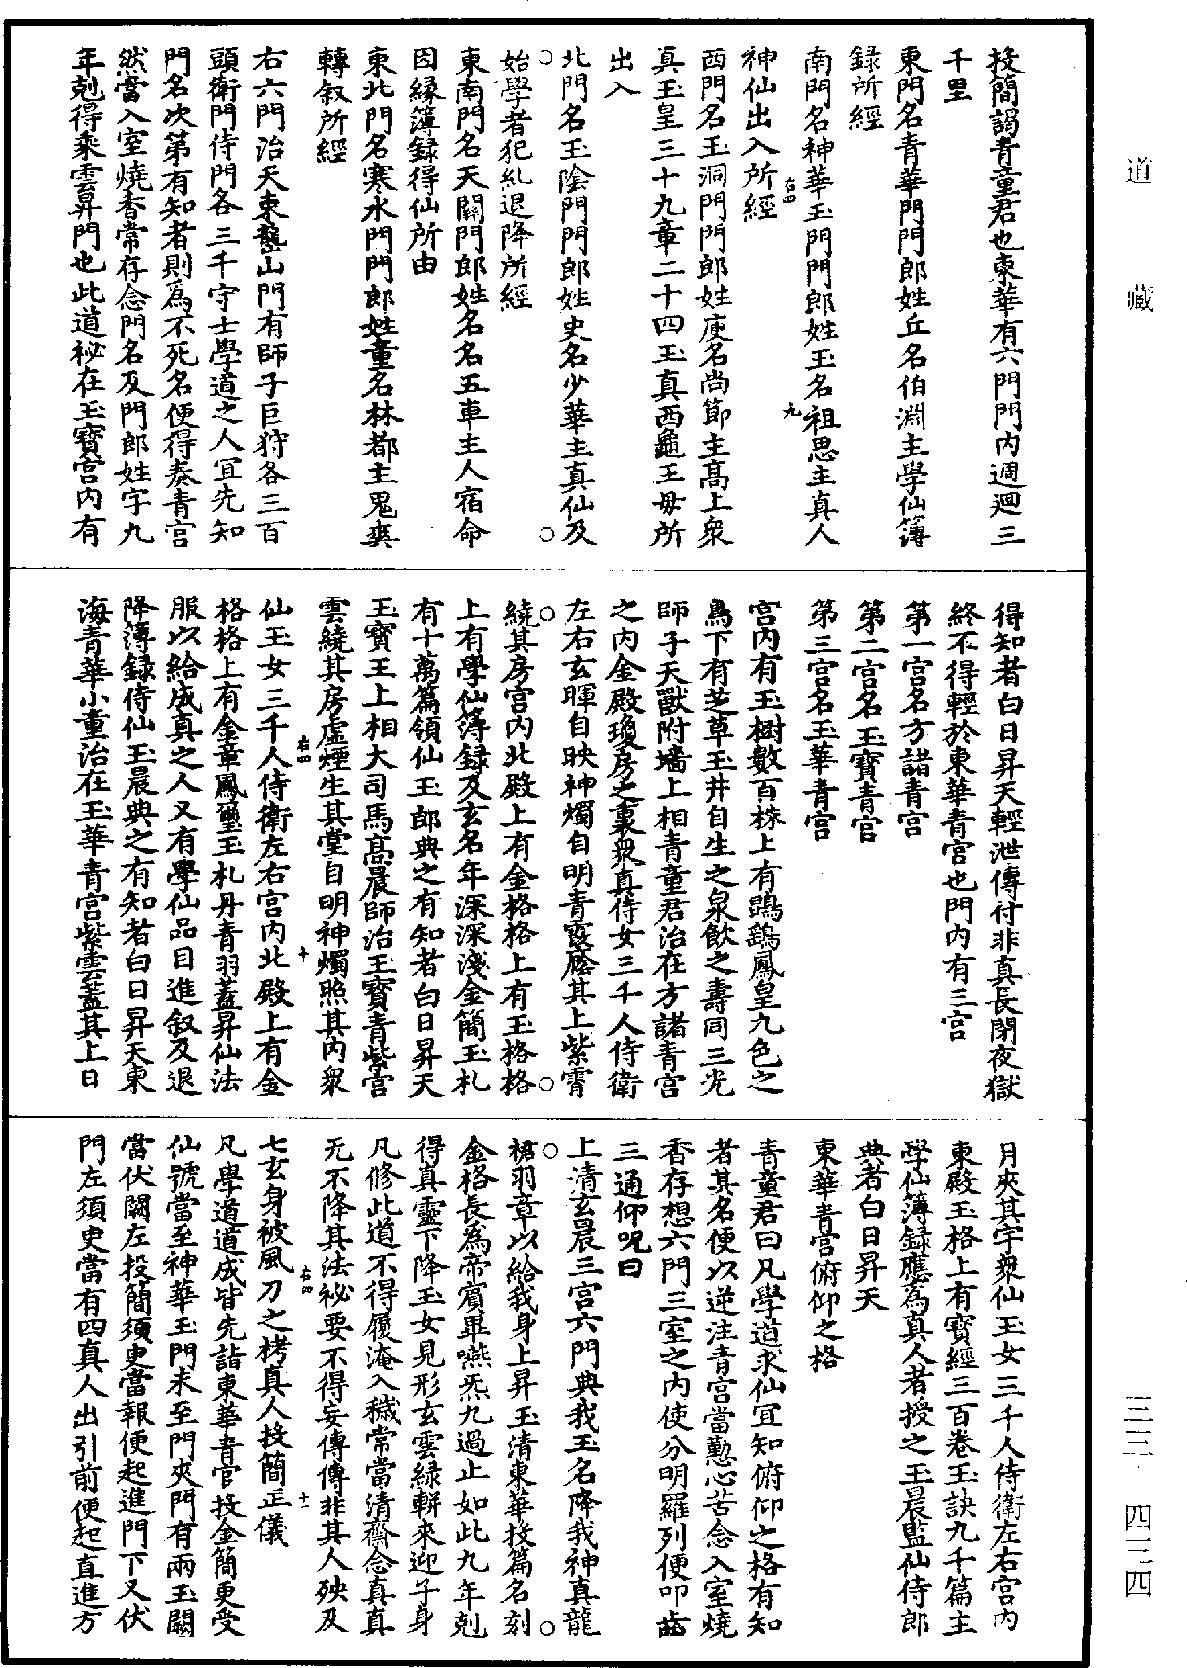 道藏
三三·四三四
投簡謁青童君也東華有六門門內週迴三
千里
東門名青華門門郎姓丘名伯淵主學仙簿
録所經
南門名神華玉門門郎姓王名祖思主真人
右四　九
神仙出入所經
西門名玉洞門門郎姓庾名尚節主高上衆
真玉皇三十九章二十四玉真西龜王母所
出入
北門名玉陰門門郎姓史名少華主真仙及
始學者犯糺退降所經
東南門名天關門郎姓名名五車主人宿命
因緣簿録得仙所由
東北門名寒水門門郎姓童名林都主鬼爽
轉叙所經
右六門治天東𡼏山門有師子巨狩各三百
頭衛門侍門各三千守士學道之人冝先知
門名次第有知者則為不死名便得奏青宮
然當入室燒香常存念門名及門郎姓字九
年剋得乘雲昇門也此道祕在玉寶宮內有
得知者白日昇天輕泄傳付非真長閉夜獄
終不得輕於東華青宮也門內有三宮
第一宮名方諸青宮
第二宮名玉寶青宮
第三宮名玉華青宮
宮內有玉樹數百株上有鵾鷄鳳皇九色之
鳥下有芝草玉井自生之泉飲之壽同三光
師子天獸附墻上相青童君治在方諸青宮
之內金殿瓊房之裏衆真侍女三千人侍衛
左右玄暉自映神燭自明青霞廕其上紫霄
繞其房宮內北殿上有金格格上有玉格格
上有學仙簿録及玄名年深深淺金簡玉札
有十萬篇領仙玉郎典之有知者白日昇天
玉寶王上相大司馬高晨師治玉寶青紫宮
雲繞其房虛煙生其堂自明神燭照其內衆
右四　十
仙玉女三千人侍衛左右宮內北殿上有金
格格上有金章鳳璽玉札丹青羽蓋昇仙法
服以給成真之人又有學仙品目進叙及退
降簿録侍仙玉晨典之有知者白日昇天東
海青華小童治在玉華青宮紫雲蓋其上日
月夾其宇衆仙玉女三千人侍衛左右宮內
東殿玉格上有寶經三百卷玉訣九千篇主
學仙簿録應為真人者授之玉晨監仙侍郎
典者白日昇天
東華青宮俯仰之格
青童君曰凡學道求仙冝知俯仰之格有知
者其名便以逆注青宮當懃心苦念入室燒
香存想六門三室之內使分明羅列便叩齒
三通仰呪曰
上清玄晨三宮六門典我玉名降我神真龍
裙羽章以給我身上昇玉清東華投篇名刻
金格長為帝賓畢嚥炁九過止如此九年剋
得真靈下降玉女見形玄雲緑輧來迎子身
凡修此道不得履淹入穢常當清齋念真真
无不降其法祕要不得妄傳傳非其人殃及
右四　十一
七玄身被風刀之栲真人投簡正儀
凡學道道成皆先詣東華青官投金簡更受
仙號當至神華玉門未至門夾門有兩玉闕
當伏闕左投簡須臾當報便起進門下又伏
門左須臾當有四真人出引前便起直進方